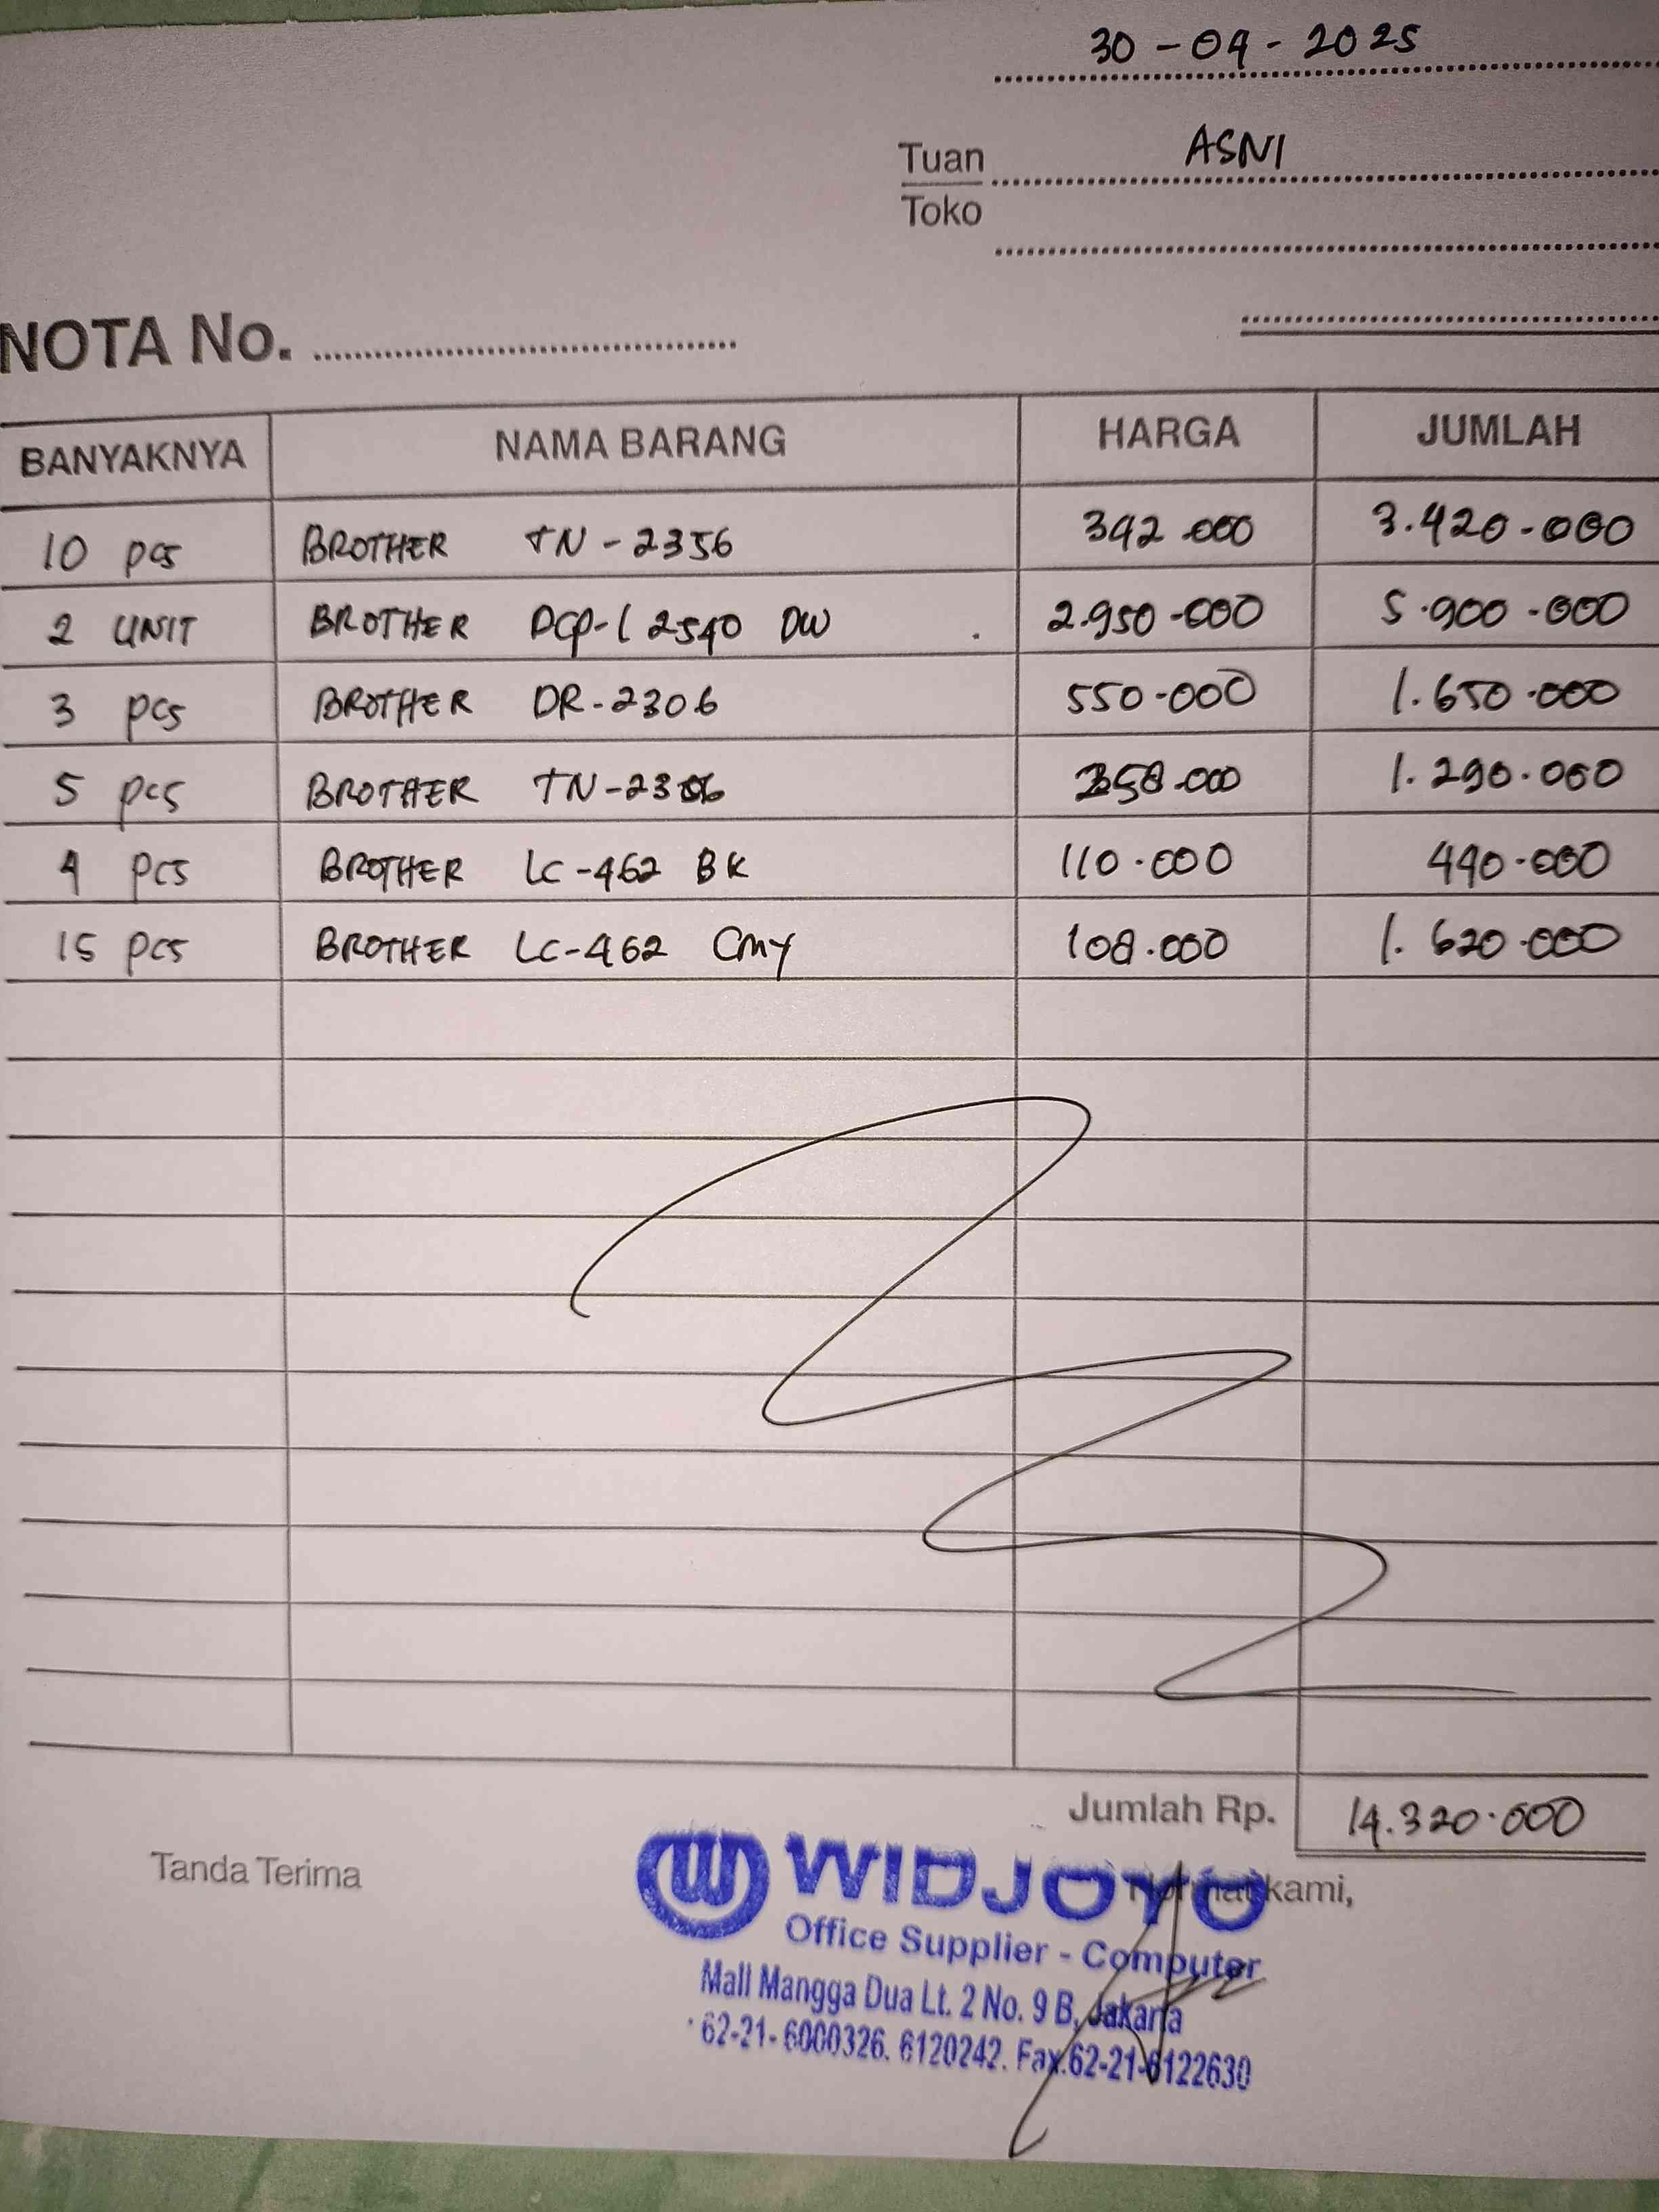 30 - 04 - 2025
Tuan ASNI
Toko
NOTA No.
BANYAKNYA NAMA BARANG HARGA JUMLAH
10 pcs BROTHER TN-2356 342.000 3.420.000
2 UNIT BROTHER DCP-L2540 DW 2.950.000 5.900.000
3 pcs BROTHER DR-2306 550.000 1.650.000
5 pcs BROTHER TN-2306 258.000 1.290.000
4 pcs BROTHER LC-462 BK 110.000 440.000
15 pcs BROTHER LC-462 CMY 108.000 1.620.000
Jumlah Rp. 14.320.000
Tanda Terima Hormat kami,
WIDJOYO
Office Supplier - Computer
Mall Mangga Dua Lt. 2 No. 9 B, Jakarta
62-21- 6000326. 6120242. Fax.62-21-6122630